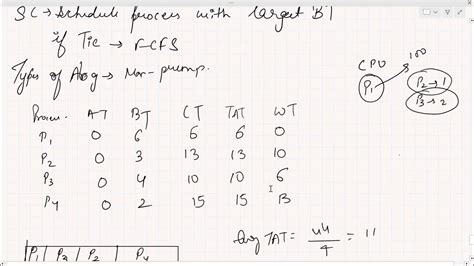 SC → Schedule process with largest BT
if Tie → FCFS
Types of Algo → Non-preemp.
CPU
100
P1
P2 → 1
P3 → 2
Process. AT BT CT TAT WT
P1 0 6 6 6 0
P2 0 3 13 13 10
P3 0 4 10 10 6
P4 0 2 15 15 13
Avg TAT = 44/4 = 11
P1 P3 P2 P4